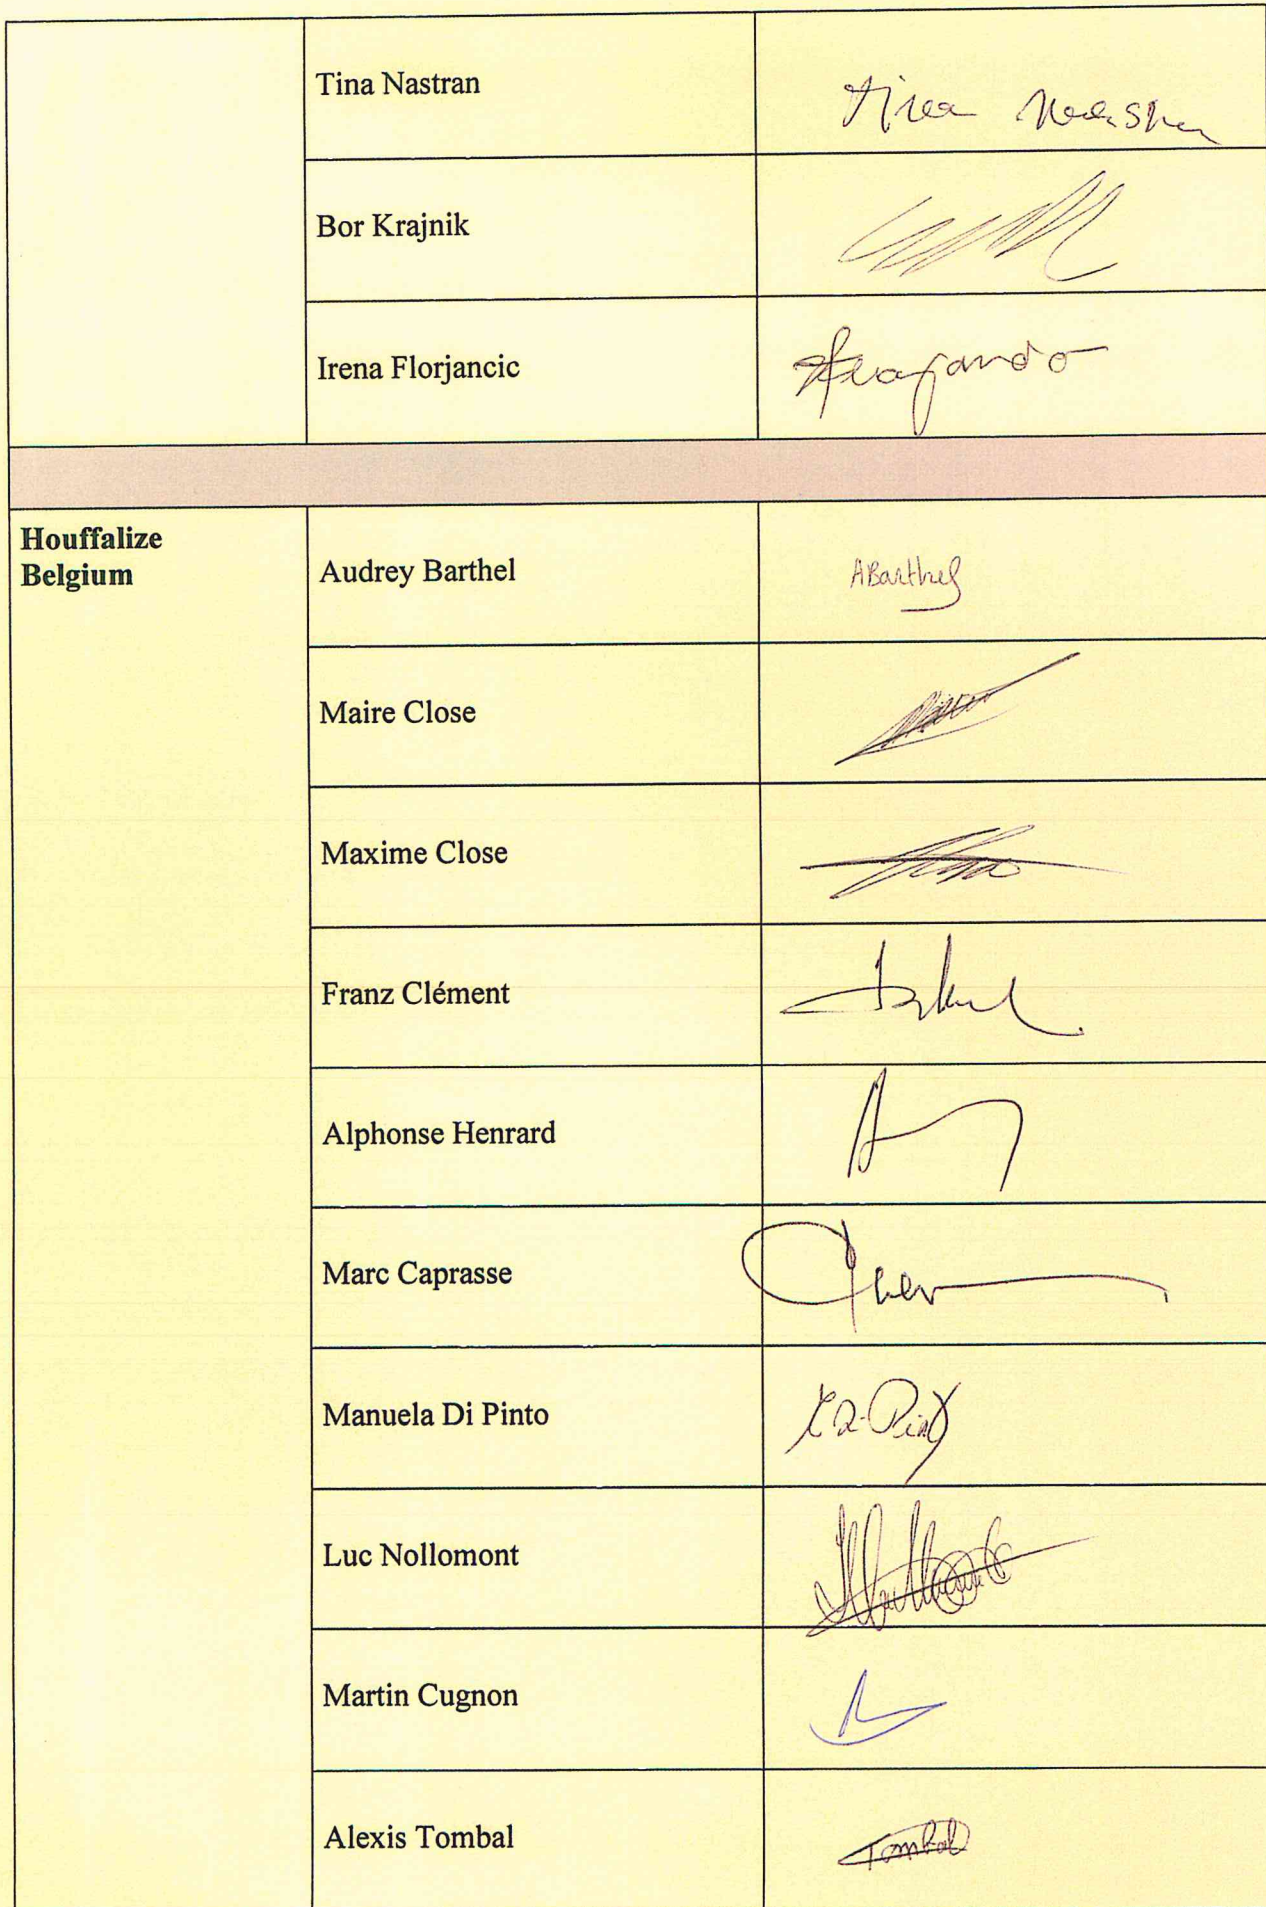 Tina Nastran
Tina Nastran
Bor Krajnik
Irena Florjancic
Houffalize
Belgium
Audrey Barthel
ABarthel
Maire Close
Maxime Close
Franz Clément
Alphonse Henrard
Marc Caprasse
Manuela Di Pinto
Luc Nollomont
Martin Cugnon
Alexis Tombal
Tombal